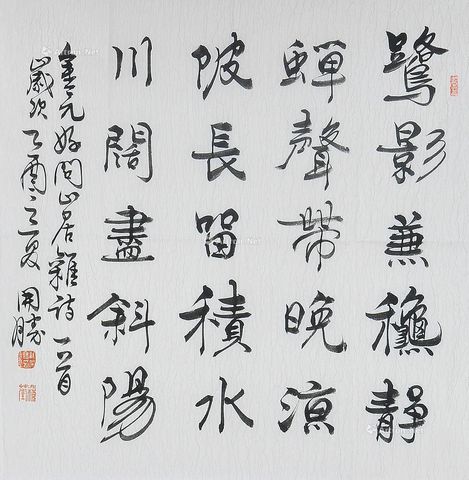 鷺影兼龝靜
蟬聲帶晚涼
陂長留積水
川闊盡斜陽
書元好問山居雜詩一首
歲次乙酉之夏 開勝